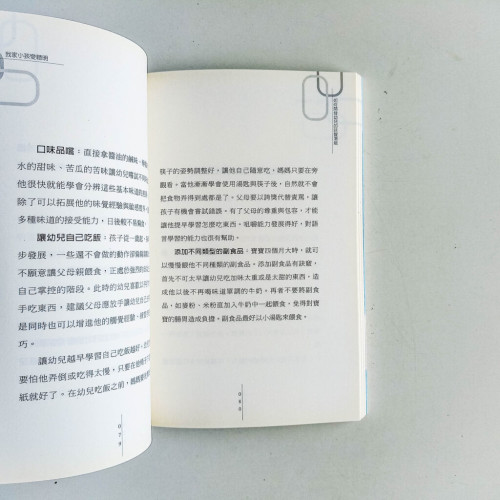 我家小孩愛聽話
口味品嚐：直接拿醬油的鹹味、
水的甜味、苦瓜的苦味讓幼兒嚐試
他很快就能學會分辨這些基本味道的
除了可以拓展他的味覺經驗與敏感
多種味道的接受能力，日後較不易
讓幼兒自己吃飯：孩子從一歲起
步發展，一些還不會做的動作卻偏偏
不願意讓父母親餵食，正處於偏執
自己掌控的階段。此時的幼兒喜歡以手
手吃東西，建議父母應放手讓幼兒自己
是同時也可以增進他的觸覺經驗、
巧。
讓幼兒越早學習自己吃飯越好，
要怕他弄倒或吃得太慢，只要在他椅子下
紙就好了。在幼兒吃飯之前，媽媽要
079
筷子的姿勢調整好，讓他自己隨意吃，媽媽只要在旁
觀看。當他漸漸學會使用湯匙與筷子後，自然就不會
把食物弄得到處都是了。父母要以誇獎代替責罵，讓
孩子有機會嘗試錯誤。有了父母的尊重與包容，才能
讓他提早學習怎麼吃東西。咀嚼能力發展得好，對語
言學習的能力也很有幫助。
添加不同類型的副食品：寶寶四個月大時，就可
以慢慢餵他不同種類的副食品。添加副食品有訣竅，
首先不可太早讓幼兒吃加味太重或是太甜的東西，造
成他以後不再喝味道單調的牛奶。再者不要將副食品
，如麥粉、米粉直加入牛奶中一起餵食，免得對寶
寶的腸胃造成負擔。副食品最好以小湯匙來餵食。
080